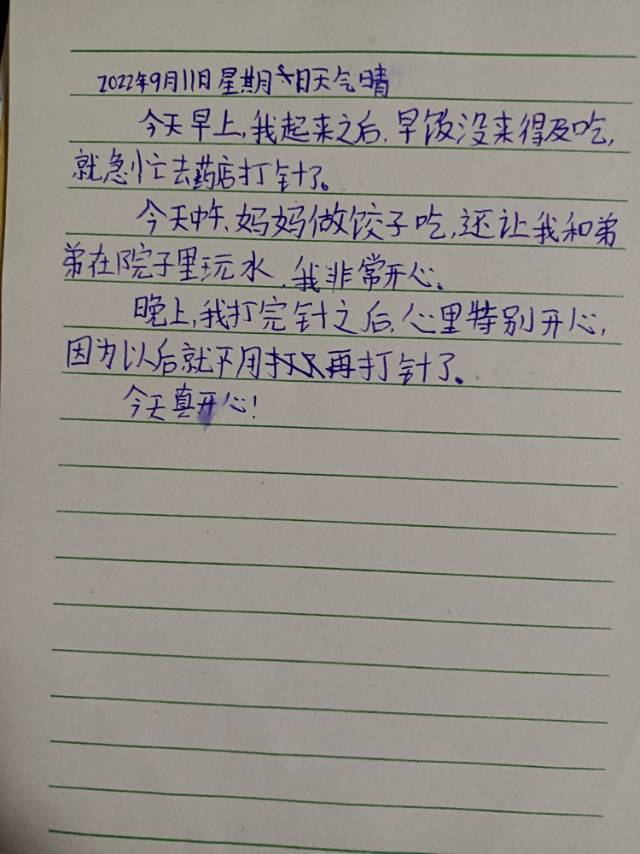 2022年9月11日星期日天气晴
今天早上,我起来之后,早饭没来得及吃,
就急忙去药店打针了。
今天中午,妈妈做饺子吃,还让我和弟
弟在院子里玩水,我非常开心。
晚上,我打完针之后,心里特别开心,
因为以后就不用再打针了。
今天真开心!